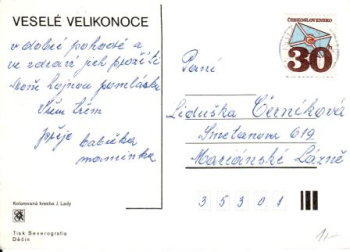 VESELÉ VELIKONOCE
v dobré pohodě a
ve zdraví jich prožití
hojnou pomlázku
Všem třem
přeje babička
maminka
Kolorovaná kresba J. Lady
Tisk Severografia
Děčín
ČESKOSLOVENSKO
30
Paní
Liduška Černíková
Smetanova 619
Mariánské Lázně
35301